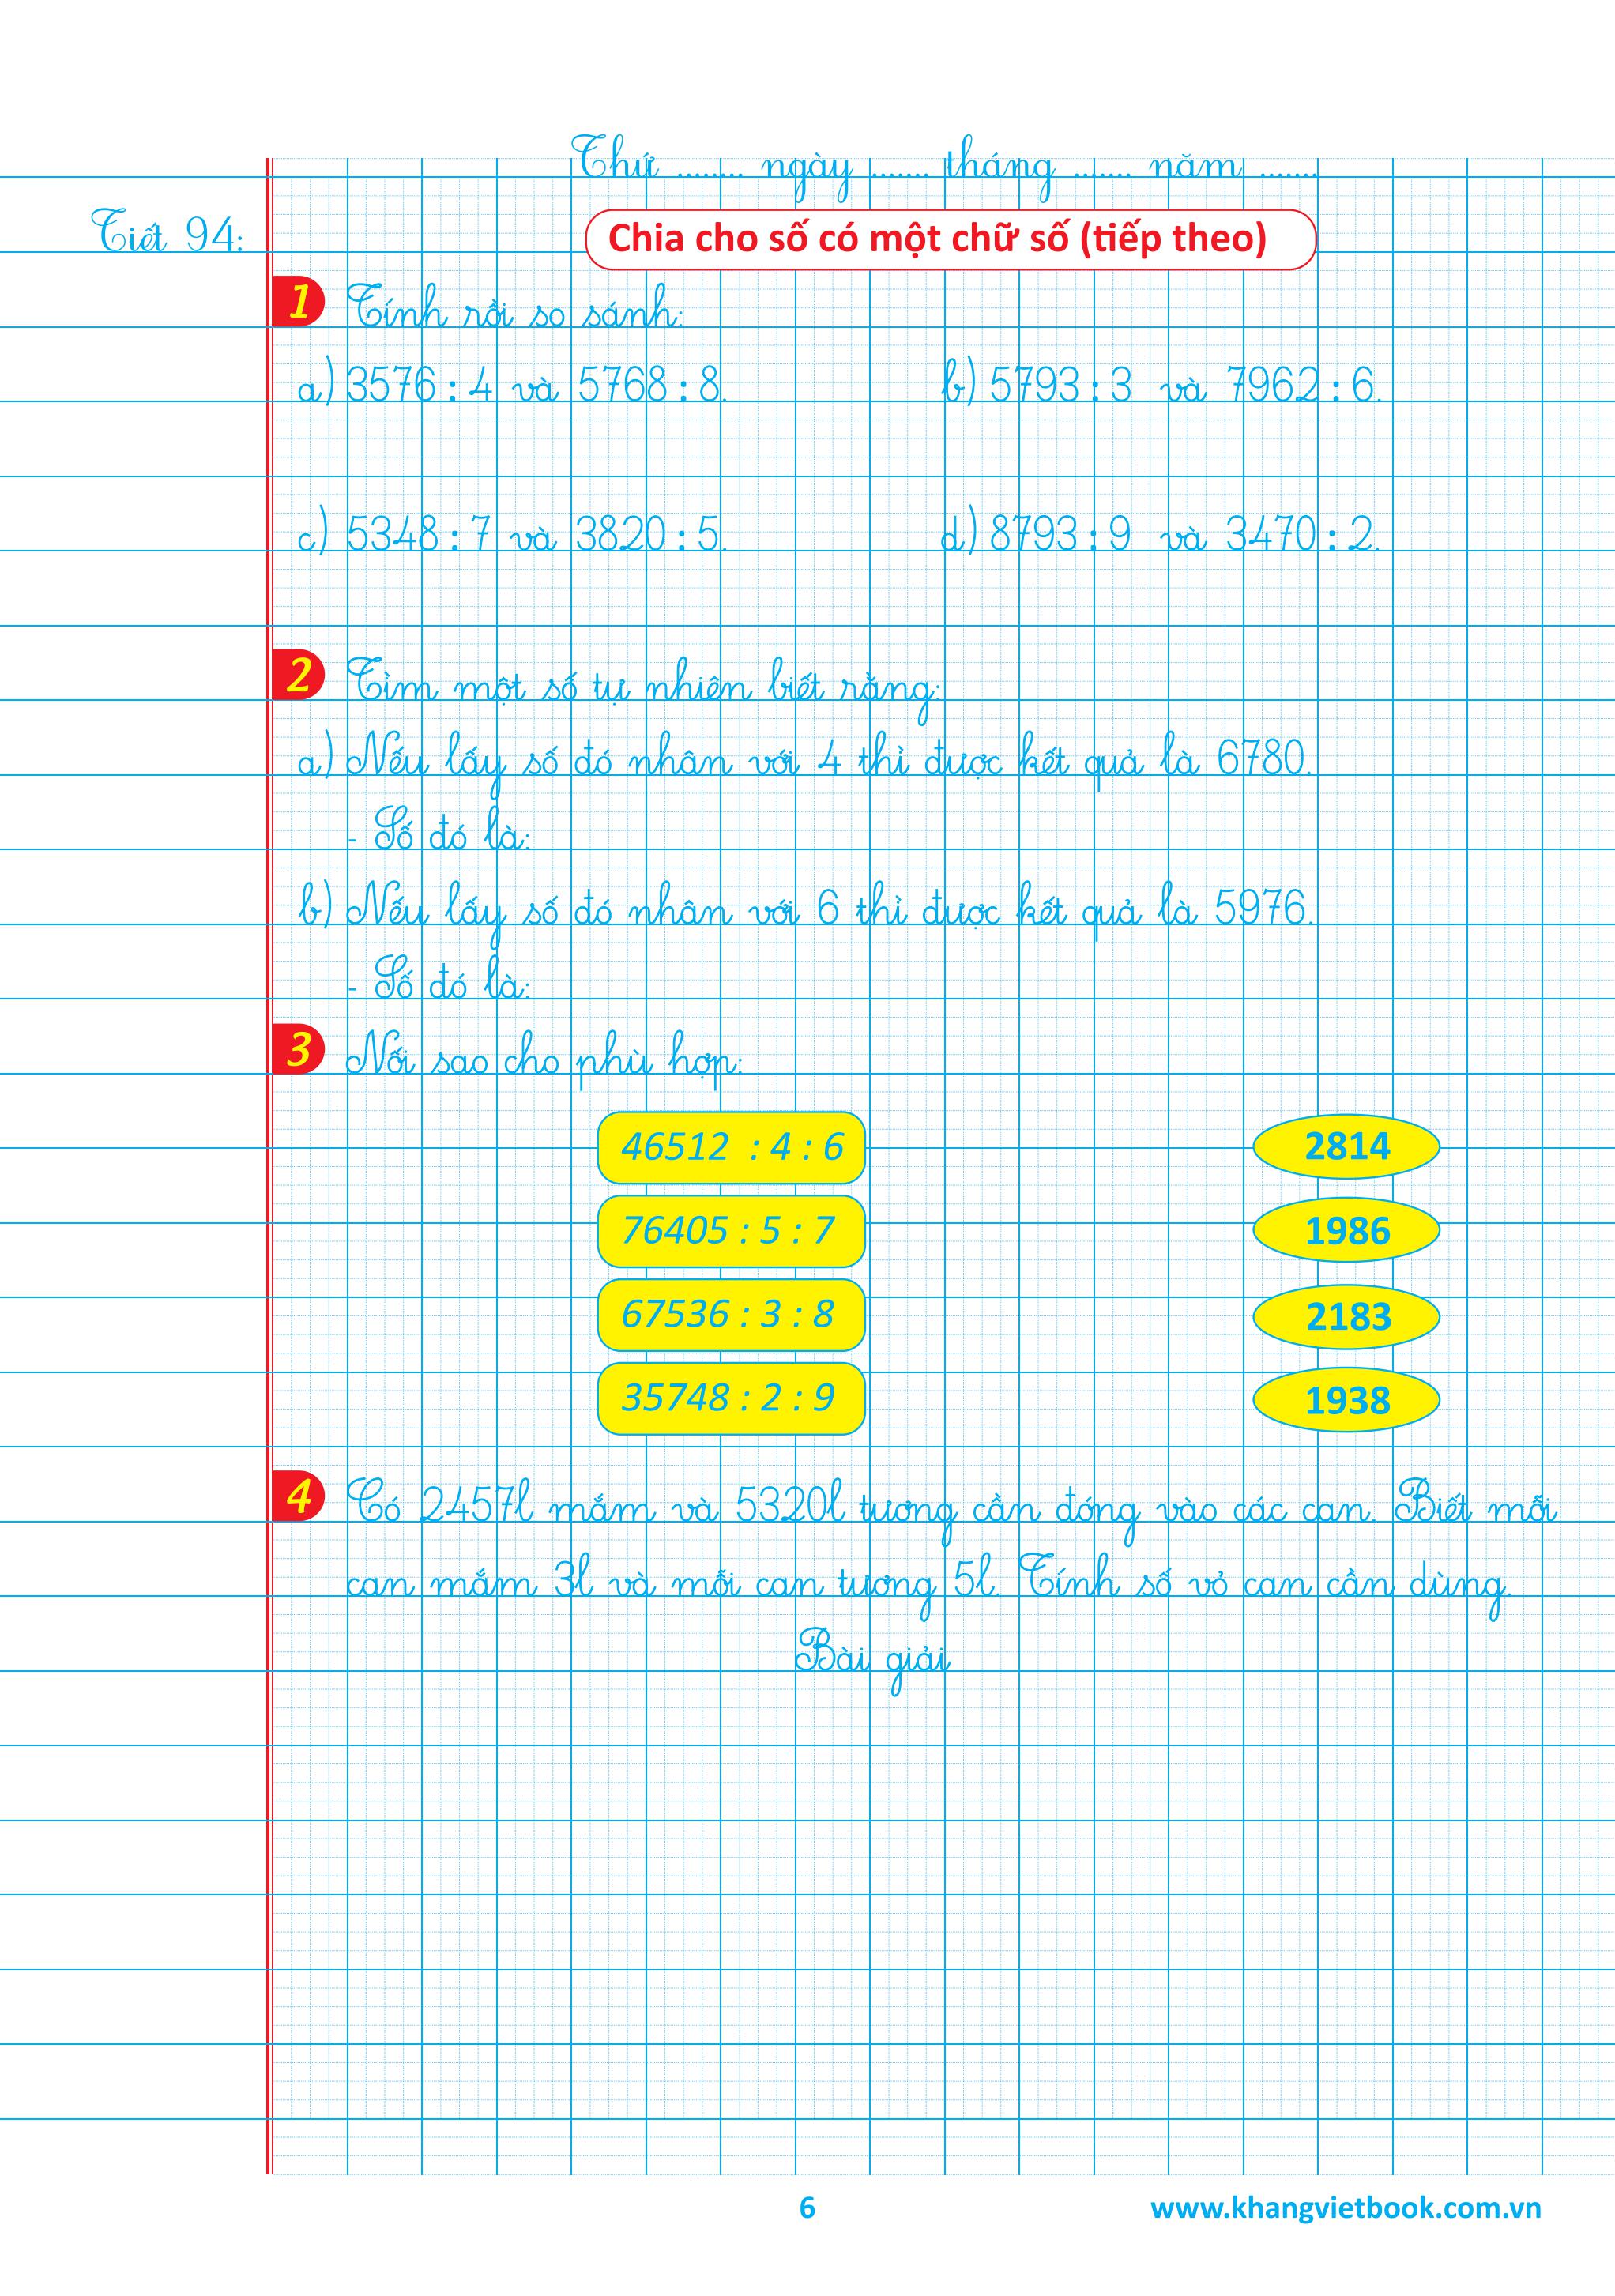 Thứ ........ ngày ....... tháng ....... năm .......
Tiết 94:
Chia cho số có một chữ số (tiếp theo)
1 Tính rồi so sánh:
a) 3576 : 4 và 5768 : 8. b) 5793 : 3 và 7962 : 6.
c) 5348 : 7 và 3820 : 5. d) 8793 : 9 và 3470 : 2.
2 Tìm một số tự nhiên biết rằng:
a) Nếu lấy số đó nhân với 4 thì được kết quả là 6780.
- Số đó là:
b) Nếu lấy số đó nhân với 6 thì được kết quả là 5976.
- Số đó là:
3 Nối sao cho phù hợp:
46512 : 4 : 6 2814
76405 : 5 : 7 1986
67536 : 3 : 8 2183
35748 : 2 : 9 1938
4 Có 2457l mắm và 5320l tương cần đóng vào các can. Biết mỗi
can mắm 3l và mỗi can tương 5l. Tính số vỏ can cần dùng.
Bài giải
6 www.khangvietbook.com.vn